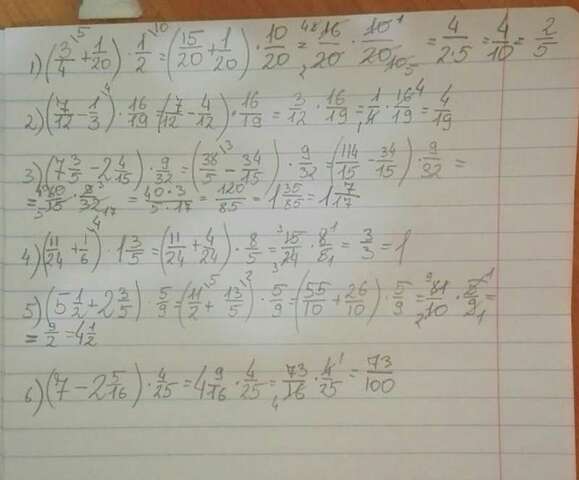 1) (3/4 + 1/20) · 1/2 = (15/20 + 1/20) · 10/20 = 16/20 · 10/20 = 4/2·5 = 4/10 = 2/5
2) (7/12 - 1/3) · 16/19 (7/12 - 4/12) · 16/19 = 3/12 · 16/19 = 1/4 · 16/19 = 4/19
3) (7 3/5 - 2 4/15) · 9/32 = (38/5 - 34/15) · 9/32 = (114/15 - 34/15) · 9/32 =
= 80/15 · 9/32 = 40·3/5·17 = 120/85 = 1 35/85 = 1 7/17
4) (11/24 + 1/6) · 1 3/5 = (11/24 + 4/24) · 8/5 = 15/24 · 8/5 = 3/3 = 1
5) (5 1/2 + 2 3/5) · 5/9 = (11/2 + 13/5) · 5/9 = (55/10 + 26/10) · 5/9 = 81/10 · 5/9 =
= 9/2 = 4 1/2
6) (7 - 2 5/16) · 4/25 = 4 9/16 · 4/25 = 73/16 · 4/25 = 73/100